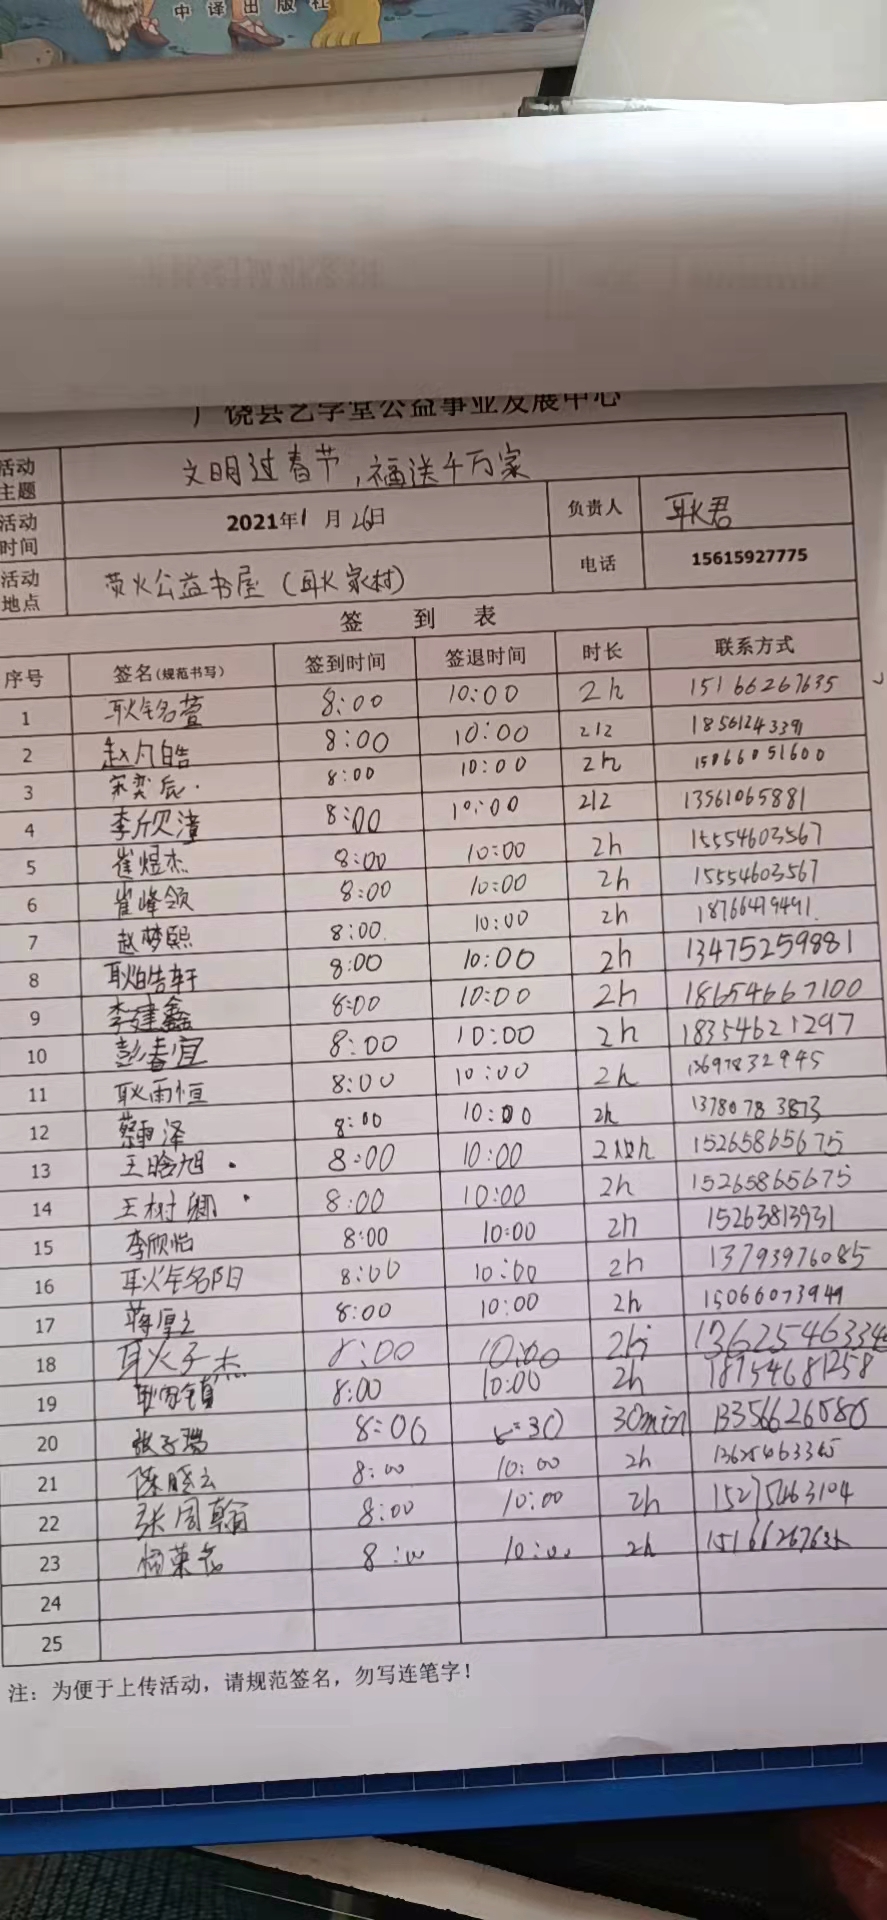 中译出版社
广饶县艺学堂公益事业发展中心
活动主题 文明过春节,福送千万家
活动时间 2021年1月26日 负责人 耿君
活动地点 荧火公益书屋(耿家村) 电话 15615927775
签到表
序号 签名(规范书写) 签到时间 签退时间 时长 联系方式
1 耿铭萱 8:00 10:00 2h 15166267635
2 赵凡皓 8:00 10:00 212 18561243391
3 宋奕辰. 8:00 10:00 2h 15066051600
4 李欣潼 8:00 10:00 212 13561065881
5 崔煜杰 8:00 10:00 2h 15554603567
6 崔峰领 8:00 10:00 2h 15554603567
7 赵梦熙 8:00 10:00 2h 18766419491
8 耿皓轩 8:00 10:00 2h 13475259881
9 李建鑫 8:00 10:00 2h 18654667100
10 彭春宜 8:00 10:00 2h 18354621297
11 耿雨恒 8:00 10:00 2h
12 蔡雨泽 8:00 10:00 2h 13780783873
13 王晗旭. 8:00 10:00 15265865675
14 王树卿. 8:00 10:00 2h 15265865675
15 李欣怡 8:00 10:00 2h 15263813931
16 耿铭阳 8:00 10:00 2h 13793976085
17 蒋厚立 8:00 10:00 2h 15066073949
18 耿子杰 8:00 10:00 2h
19 8:00 10:00 2h 18754681258
20 张子瑞 8:00 8:30 30min 13356626080
21 陈晓云 8:00 10:00 2h 13625463345
22 张周翰 8:00 10:00 2h 15275463104
23 杨荣花 8:00 10:00 2h 15166267635
24
25
注:为便于上传活动,请规范签名,勿写连笔字!